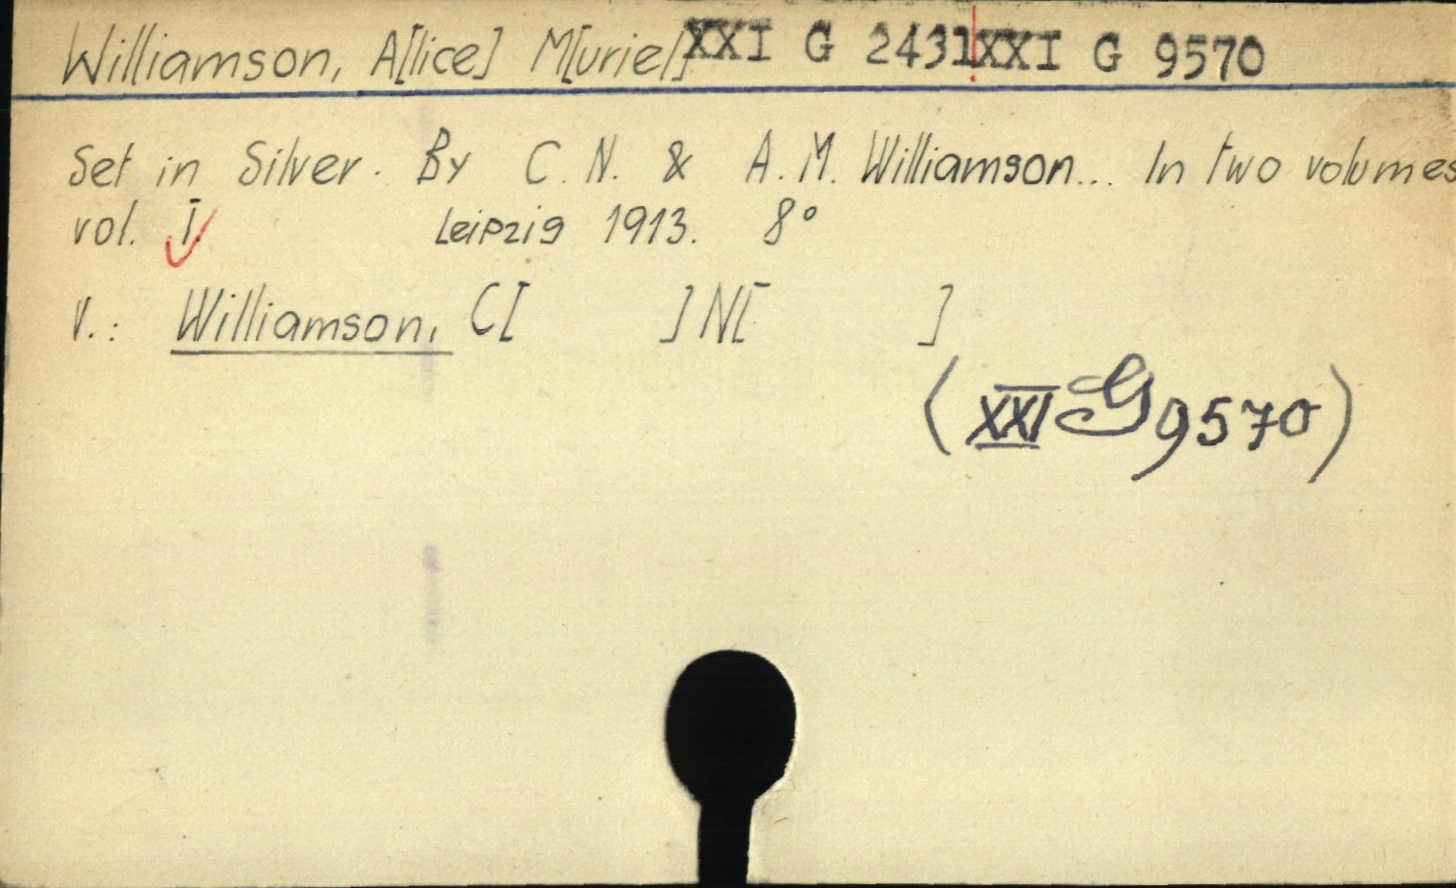 Williamson, A[lice] M[uriel] XXI G 2431 XXI G 9570
Set in Silver. By C. N. & A. M. Williamson... In two volumes
vol. I. Leipzig 1913. 8°
V.: Williamson, C[ ] N[ ]
(XXI G 9570)